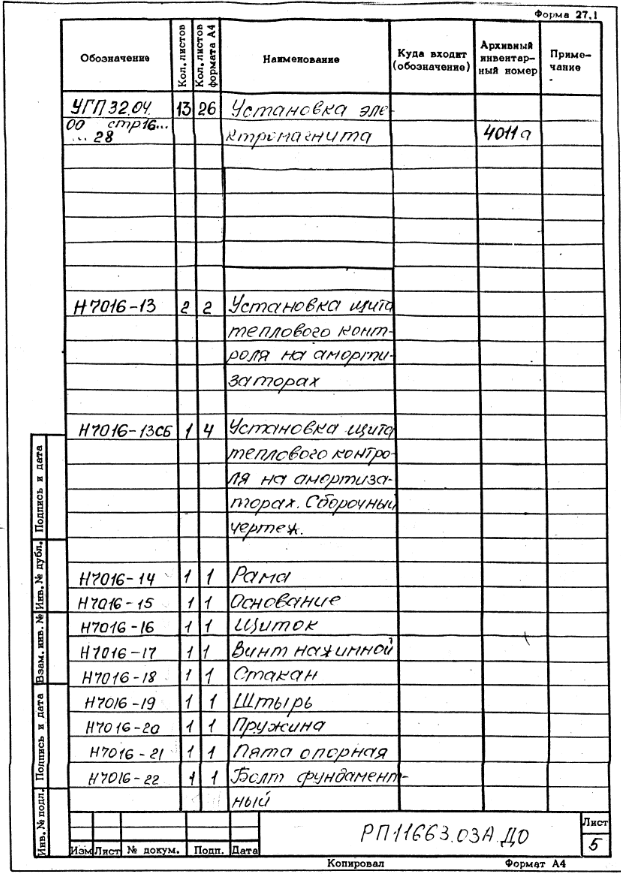 Форма 27.1
Обозначение Кол. листов Кол. листов формата А4 Наименование Куда входит (обозначение) Архивный инвентарный номер Примечание
УГП32.04. 13 26 Установка эле-
00 стр16... ктромагнита 4011а
... 28
Н7016-13 2 2 Установка щита
теплового конт-
роля на аморти-
заторах
Н7016-13СБ 1 4 Установка щита
теплового контро-
ля на амортиза-
торах. Сборочный
чертеж.
Н7016-14 1 1 Рама
Н7016-15 1 1 Основание
Н7016-16 1 1 Щиток
Н7016-17 1 1 Винт нажимной
Н7016-18 1 1 Стакан
Н7016-19 1 1 Штырь
Н7016-20 1 1 Пружина
Н7016-21 1 1 Пята опорная
Н7016-22 1 1 Болт фундамент-
ный
Инв. № подл. Подпись и дата Взам. инв. № Инв. № дубл. Подпись и дата
РП11663.03А ДО
Лист
5
Изм Лист № докум. Подп. Дата
Копировал Формат А4